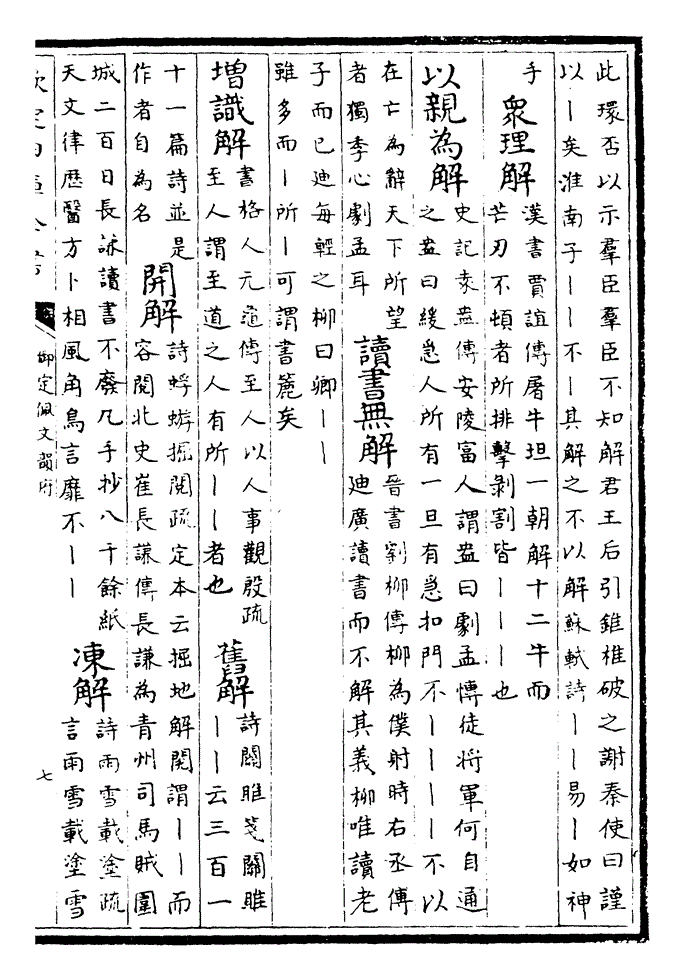 此環否以示羣臣羣臣不知解君王后引錐椎破之謝秦使曰謹
以丨矣淮南子丨丨不丨其解之不以解蘇軾詩丨丨易丨如神
手
衆理解
漢書賈誼傳屠牛坦一朝解十二牛而
芒刃不頓者所排擊剥割皆丨丨丨也
以親為解
史記袁盎傳安陵富人謂盎曰劇孟博徒將軍何自通
之盎曰緩急人所有一旦有急扣門不丨丨丨丨不以
在亡為辭天下所望
者獨季心劇孟耳
讀書無解
晉書劉柳傳柳為僕射時右丞傅
迪廣讀書而不解其義柳唯讀老
子而已迪每輕之柳曰卿丨丨
雖多而丨所丨可謂書簏矣
増識解
書格人元龜傳至人以人事觀殷疏
至人謂至道之人有所丨丨者也
舊解
詩關雎箋關雎
丨丨云三百一
十一篇詩並是
作者自為名
開解
詩蜉蝣掘閱疏定本云掘地解閱謂丨丨而
容閱北史崔長謙傳長謙為青州司馬賊圍
城二百日長謙讀書不廢凡手抄八千餘紙
天文律歴醫方卜相風角鳥言靡不丨丨
凍解
詩雨雪載塗疏
言雨雪載塗雪
欽定四庫全書
御定佩文韻府
七